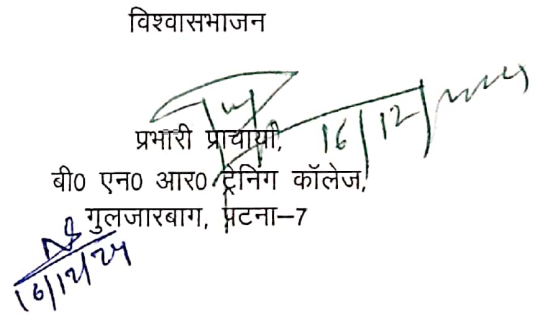 विश्वासभाजन
16/12/2024
प्रभारी प्राचार्या,
बी0 एन0 आर0 ट्रेनिंग कॉलेज,
गुलजारबाग, पटना–7
16/12/24